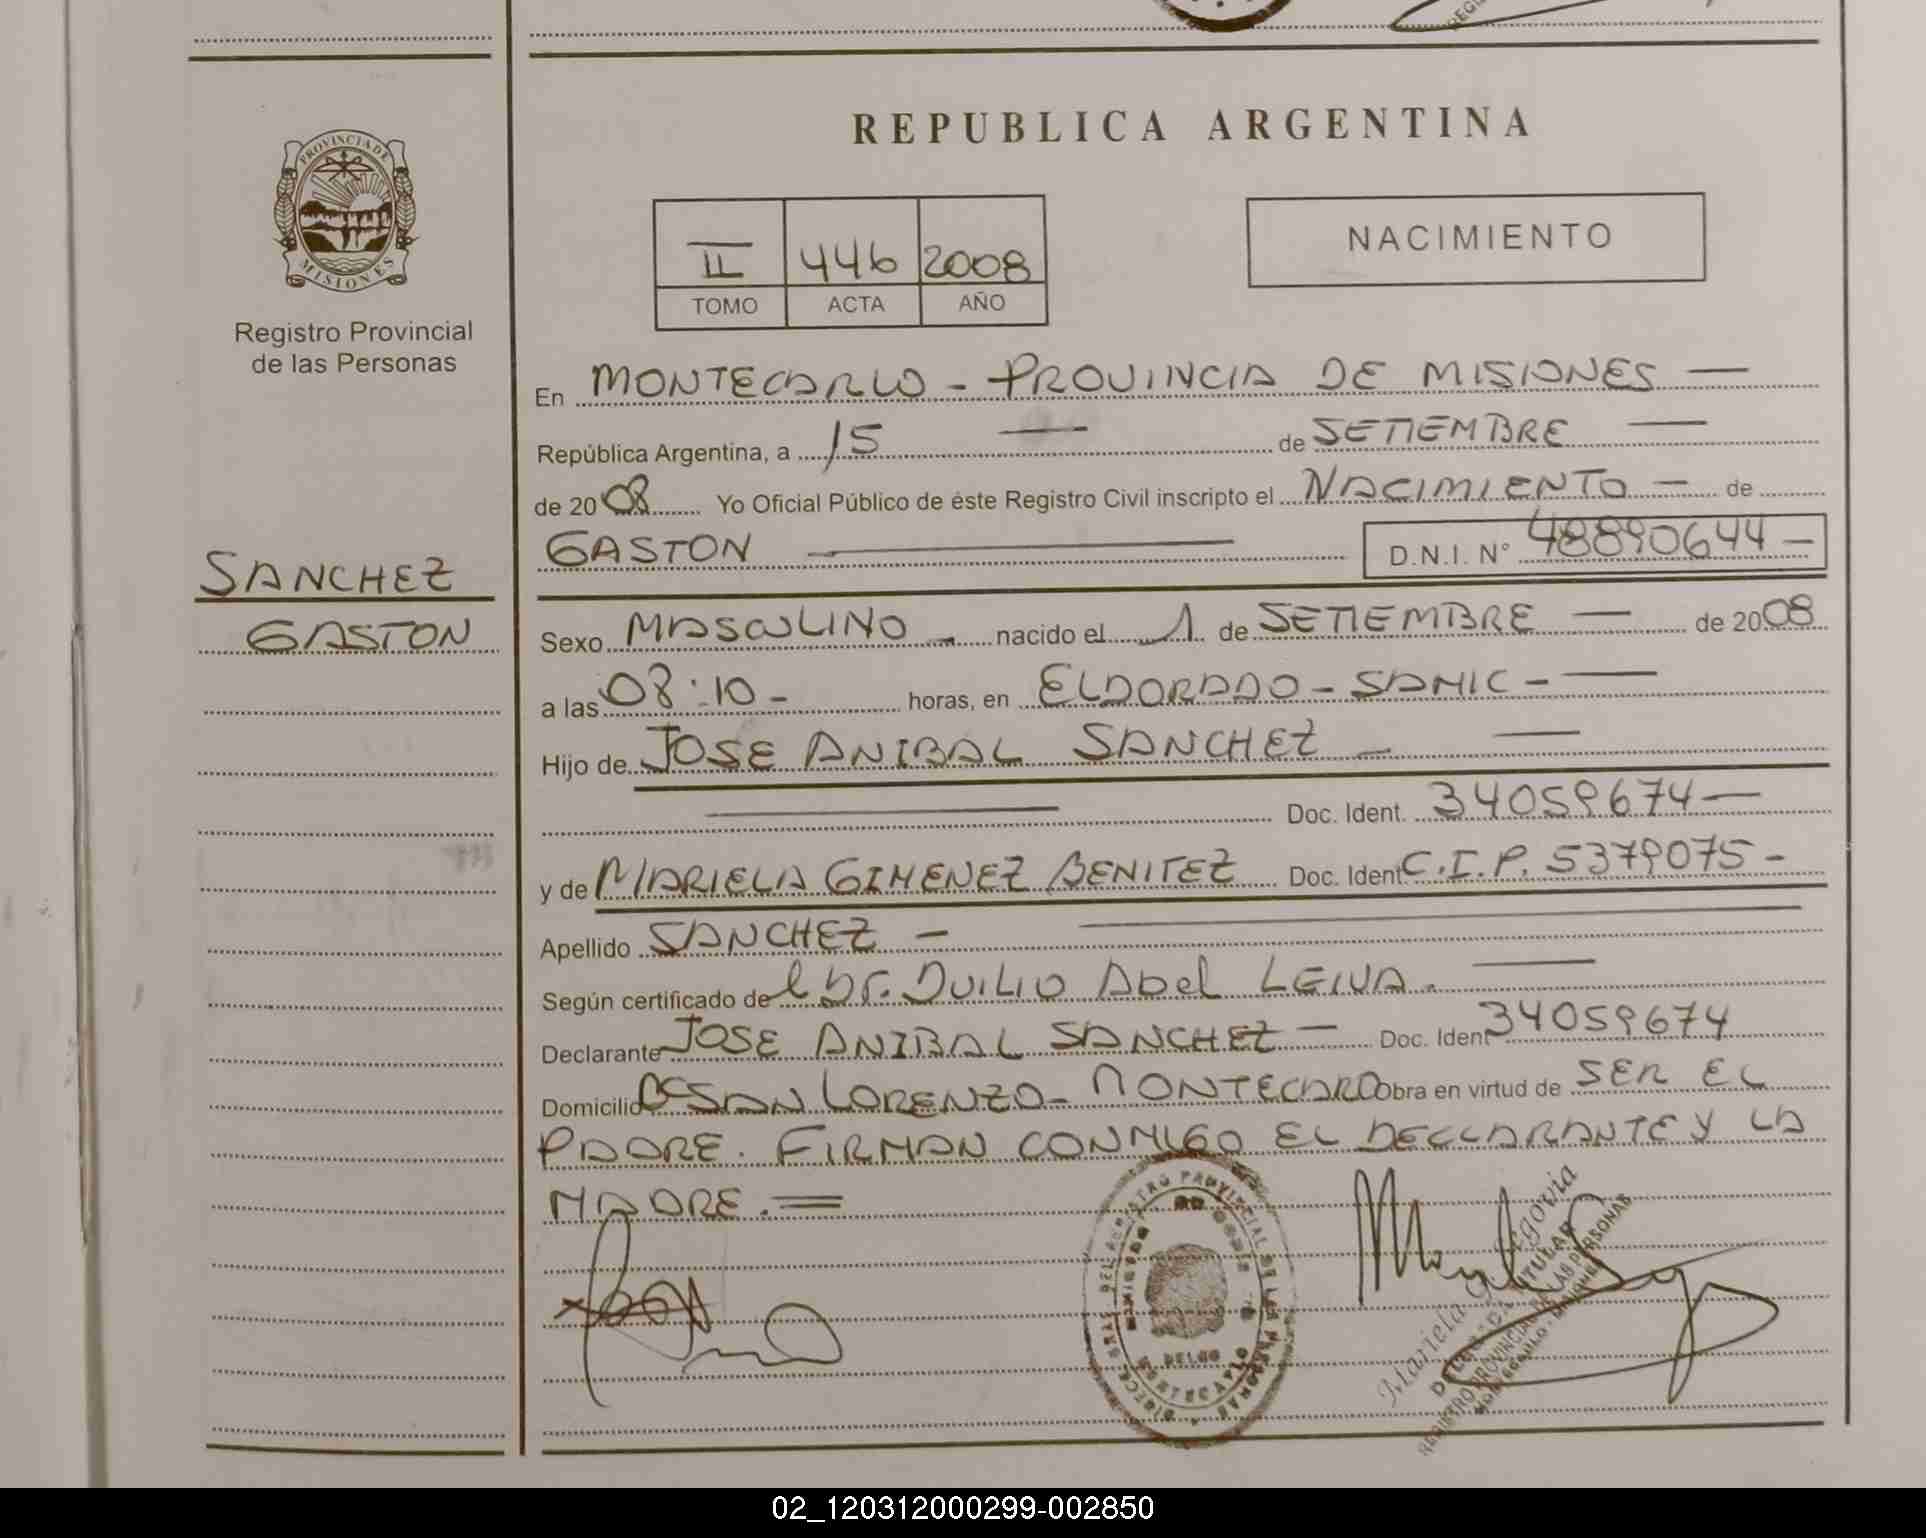 REPUBLICA ARGENTINA
PROVINCIA DE
MISIONES
Registro Provincial
de las Personas
II 446 2008
TOMO ACTA AÑO
NACIMIENTO
En MONTECARLO - PROVINCIA DE MISIONES —
República Argentina, a 15 — de SETIEMBRE —
de 2008 Yo Oficial Público de éste Registro Civil inscripto el NACIMIENTO — de
GASTON — D.N.I. N° 48890644 —
SANCHEZ
GASTON
Sexo MASCULINO - nacido el 1 de SETIEMBRE — de 2008
a las 08:10 - horas, en ELDORADO - SAMIC - —
Hijo de JOSE ANIBAL SANCHEZ - —
— Doc. Ident. 34059674 —
y de MARIELA GIMENEZ BENITEZ Doc. Ident C.I.P. 5379075 -
Apellido SANCHEZ - —
Según certificado del Dr. DUILIO Abel LEIVA. —
Declarante JOSE ANIBAL SANCHEZ — Doc. Ident 34059674
Domicilio Bº SAN LORENZO - MONTECARLO Obra en virtud de SER EL
PADRE. FIRMAN CONMIGO EL DECLARANTE Y LA
MADRE. =
Mariela Segovia
TITULAR
REGISTRO PROVINCIAL DE LAS PERSONAS
02_120312000299-002850